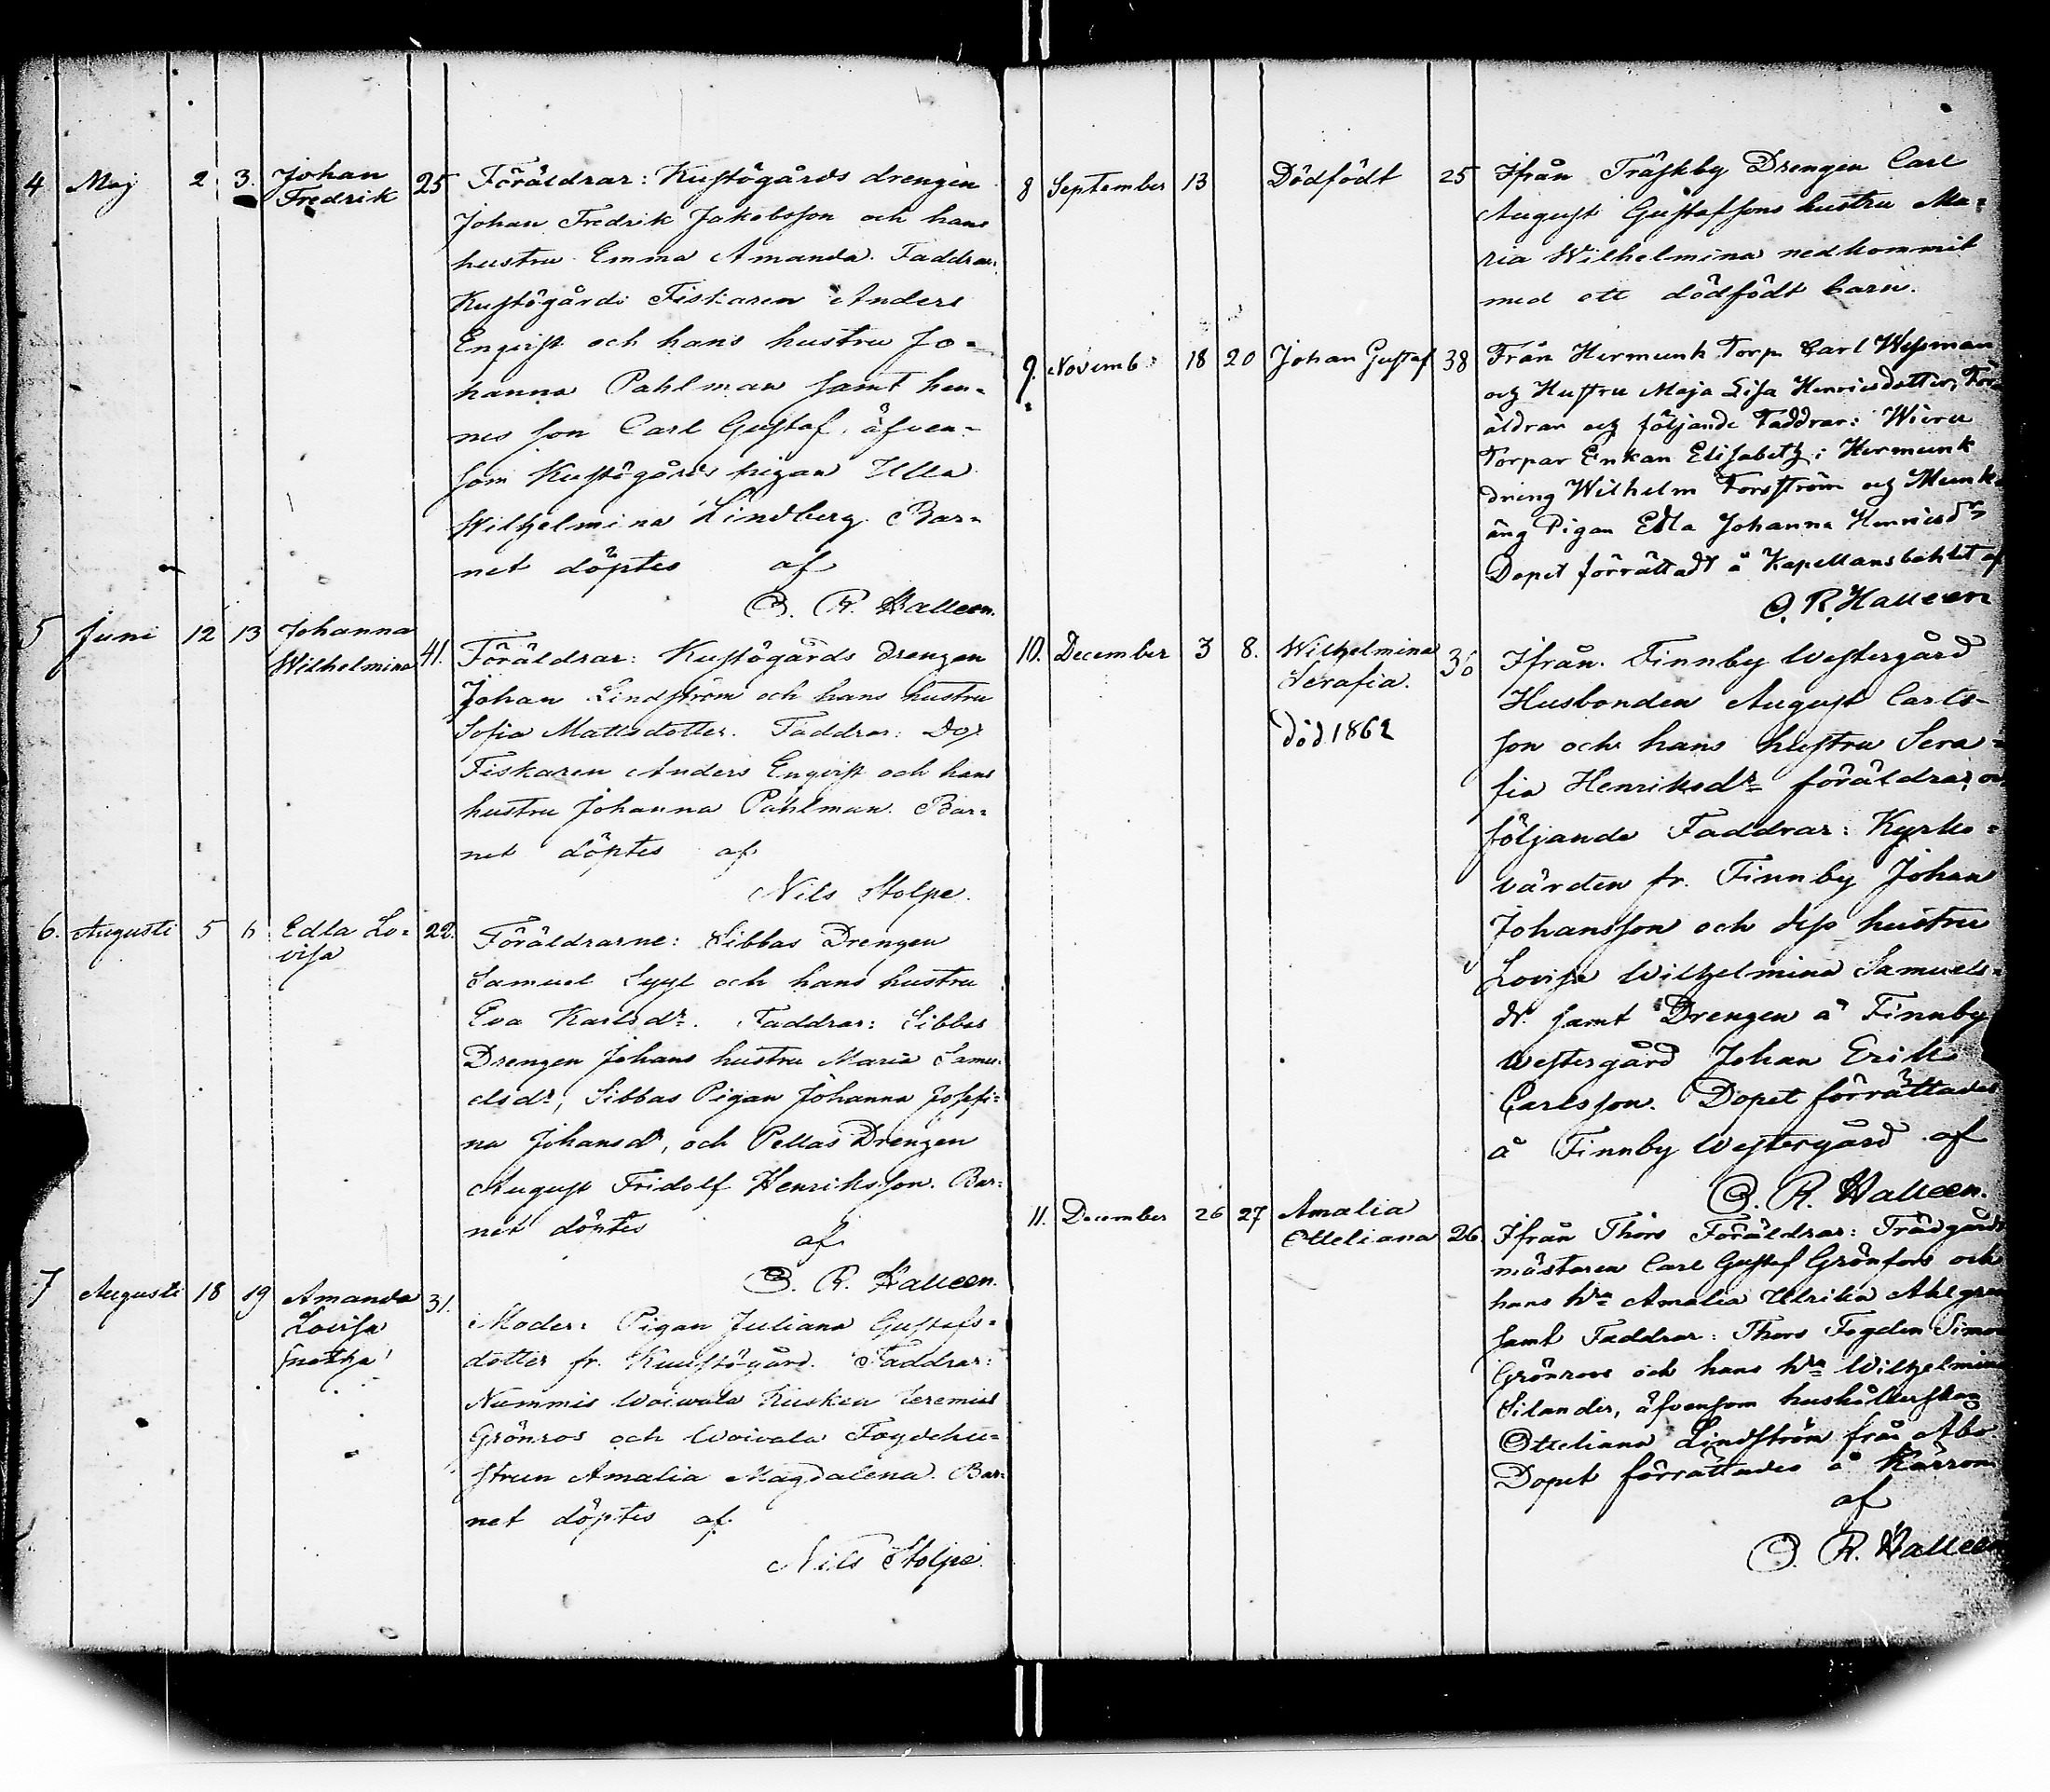 4 Maj 2 3. Johan Fredrik 25 Föräldrar: Kustögårds drengen
Johan Fredrik Jakobsson och hans
hustru Emma Amanda. Faddrar:
Kustögårds Fiskaren Anders
Enqvist och hans hustru Jo-
hanna Pahlman samt hen-
nes son Carl Gustaf, äfven-
som Kustögårds pigan Ulla
Wilhelmina Lindberg. Bar-
net döptes af
O. R. Halleen.
5 Juni 12 13 Johanna
Wilhelmina 41. Föräldrar: Kustögårds drengen
Johan Lindström och hans hustru
Sofia Mattsdotter. Faddrar: Do
Fiskaren Anders Enqvist och hans
hustru Johanna Pahlman. Bar-
net döptes af
Nils Stolpe.
6. Augusti 5 6 Edla Lo-
visa 22. Föräldrarne: Sibbas Drengen
Samuel Syyl och hans hustru
Eva Karlsdr. Faddrar: Sibbas
Drengen Johans hustru Maria Samu-
elsdr, Sibbas Pigan Johanna Josefi-
na Johansdr, och Pellas Drengen
August Fridolf Henriksson. Bar-
net döptes
af
O. R. Halleen.
7 Augusti 18 19 Amanda
Lovisa 31.
Moder: Pigan Juliana Gustafs-
dotter fr. Kuustögård. Faddrar:
Nummis Woivala Kusken Jeremias
Grönros och Woivala Fogdehu-
strun Amalia Magdalena. Bar-
net döptes af
Nils Stolpe.
8 September 13 Dödfödt 25 Ifrån Träskby Drengen Carl
August Gustafssons hustru Ma-
ria Wilhelmina nedkommit
med ett dödfödt barn.
9. Novemb: 18 20 Johan Gustaf 38 Från Hermunk Torp. Carl Wessman
och Hustru Maja Lisa Henricsdotter, För-
äldrar och följande Faddrar: Wieru
Torpar Enkan Elisabeth; Hermunk
dräng Wilhelm Forsström och Munk-
äng Pigan Edla Johanna Henricsdr
Dopet förrättadt å Kapellansbohlet af
O. R. Halleen
10. December 3 8. Wilhelmina
Serafia. 36 Ifrån Finnby Westergård
död 1862
Husbonden August Carls-
son och hans hustru Sera-
fia Henriksdr föräldrar, och
följande Faddrar: Kyrko-
värden fr. Finnby Johan
Johansson och dess hustru
Lovisa Wilhelmina Samuels-
dr. samt Drengen å Finnby
Westergård Johan Erik
Carlsson. Dopet förrättades
å Finnby Westergård af
O. R. Halleen.
11. December 26 27 Amalia
Otteliana 26. Ifrån Thors Föräldrar: Trädgårds
mästaren Carl Gustaf Grönfors och
hans hru Amalia Ulrika Ahlgren
samt Faddrar: Thors Fogden Simon
Grönroos och hans hru Wilhelmina
Silander, äfvensom hushållerskan
Otteliana Lindström från Åbo.
Dopet förrättades å
af
O. R. Halleen